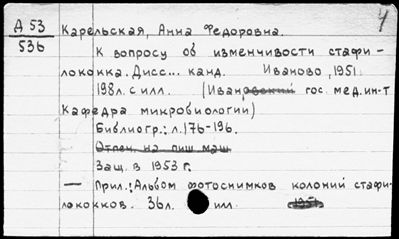 Д 53
536
Карельская, Анна Федоровна.
К вопросу об изменчивости стафи-
лококка. Дисс... канд. Иваново, 1951.
198л. с илл. (Ивановский гос. мед. ин-т
Кафедра микробиологии)
Библиогр.: л. 176-196.
Отпеч. на пиш маш
Защ. в 1953 г.
— Прил.: Альбом фотоснимков колоний стафи-
лококков. 36л. илл. 1951